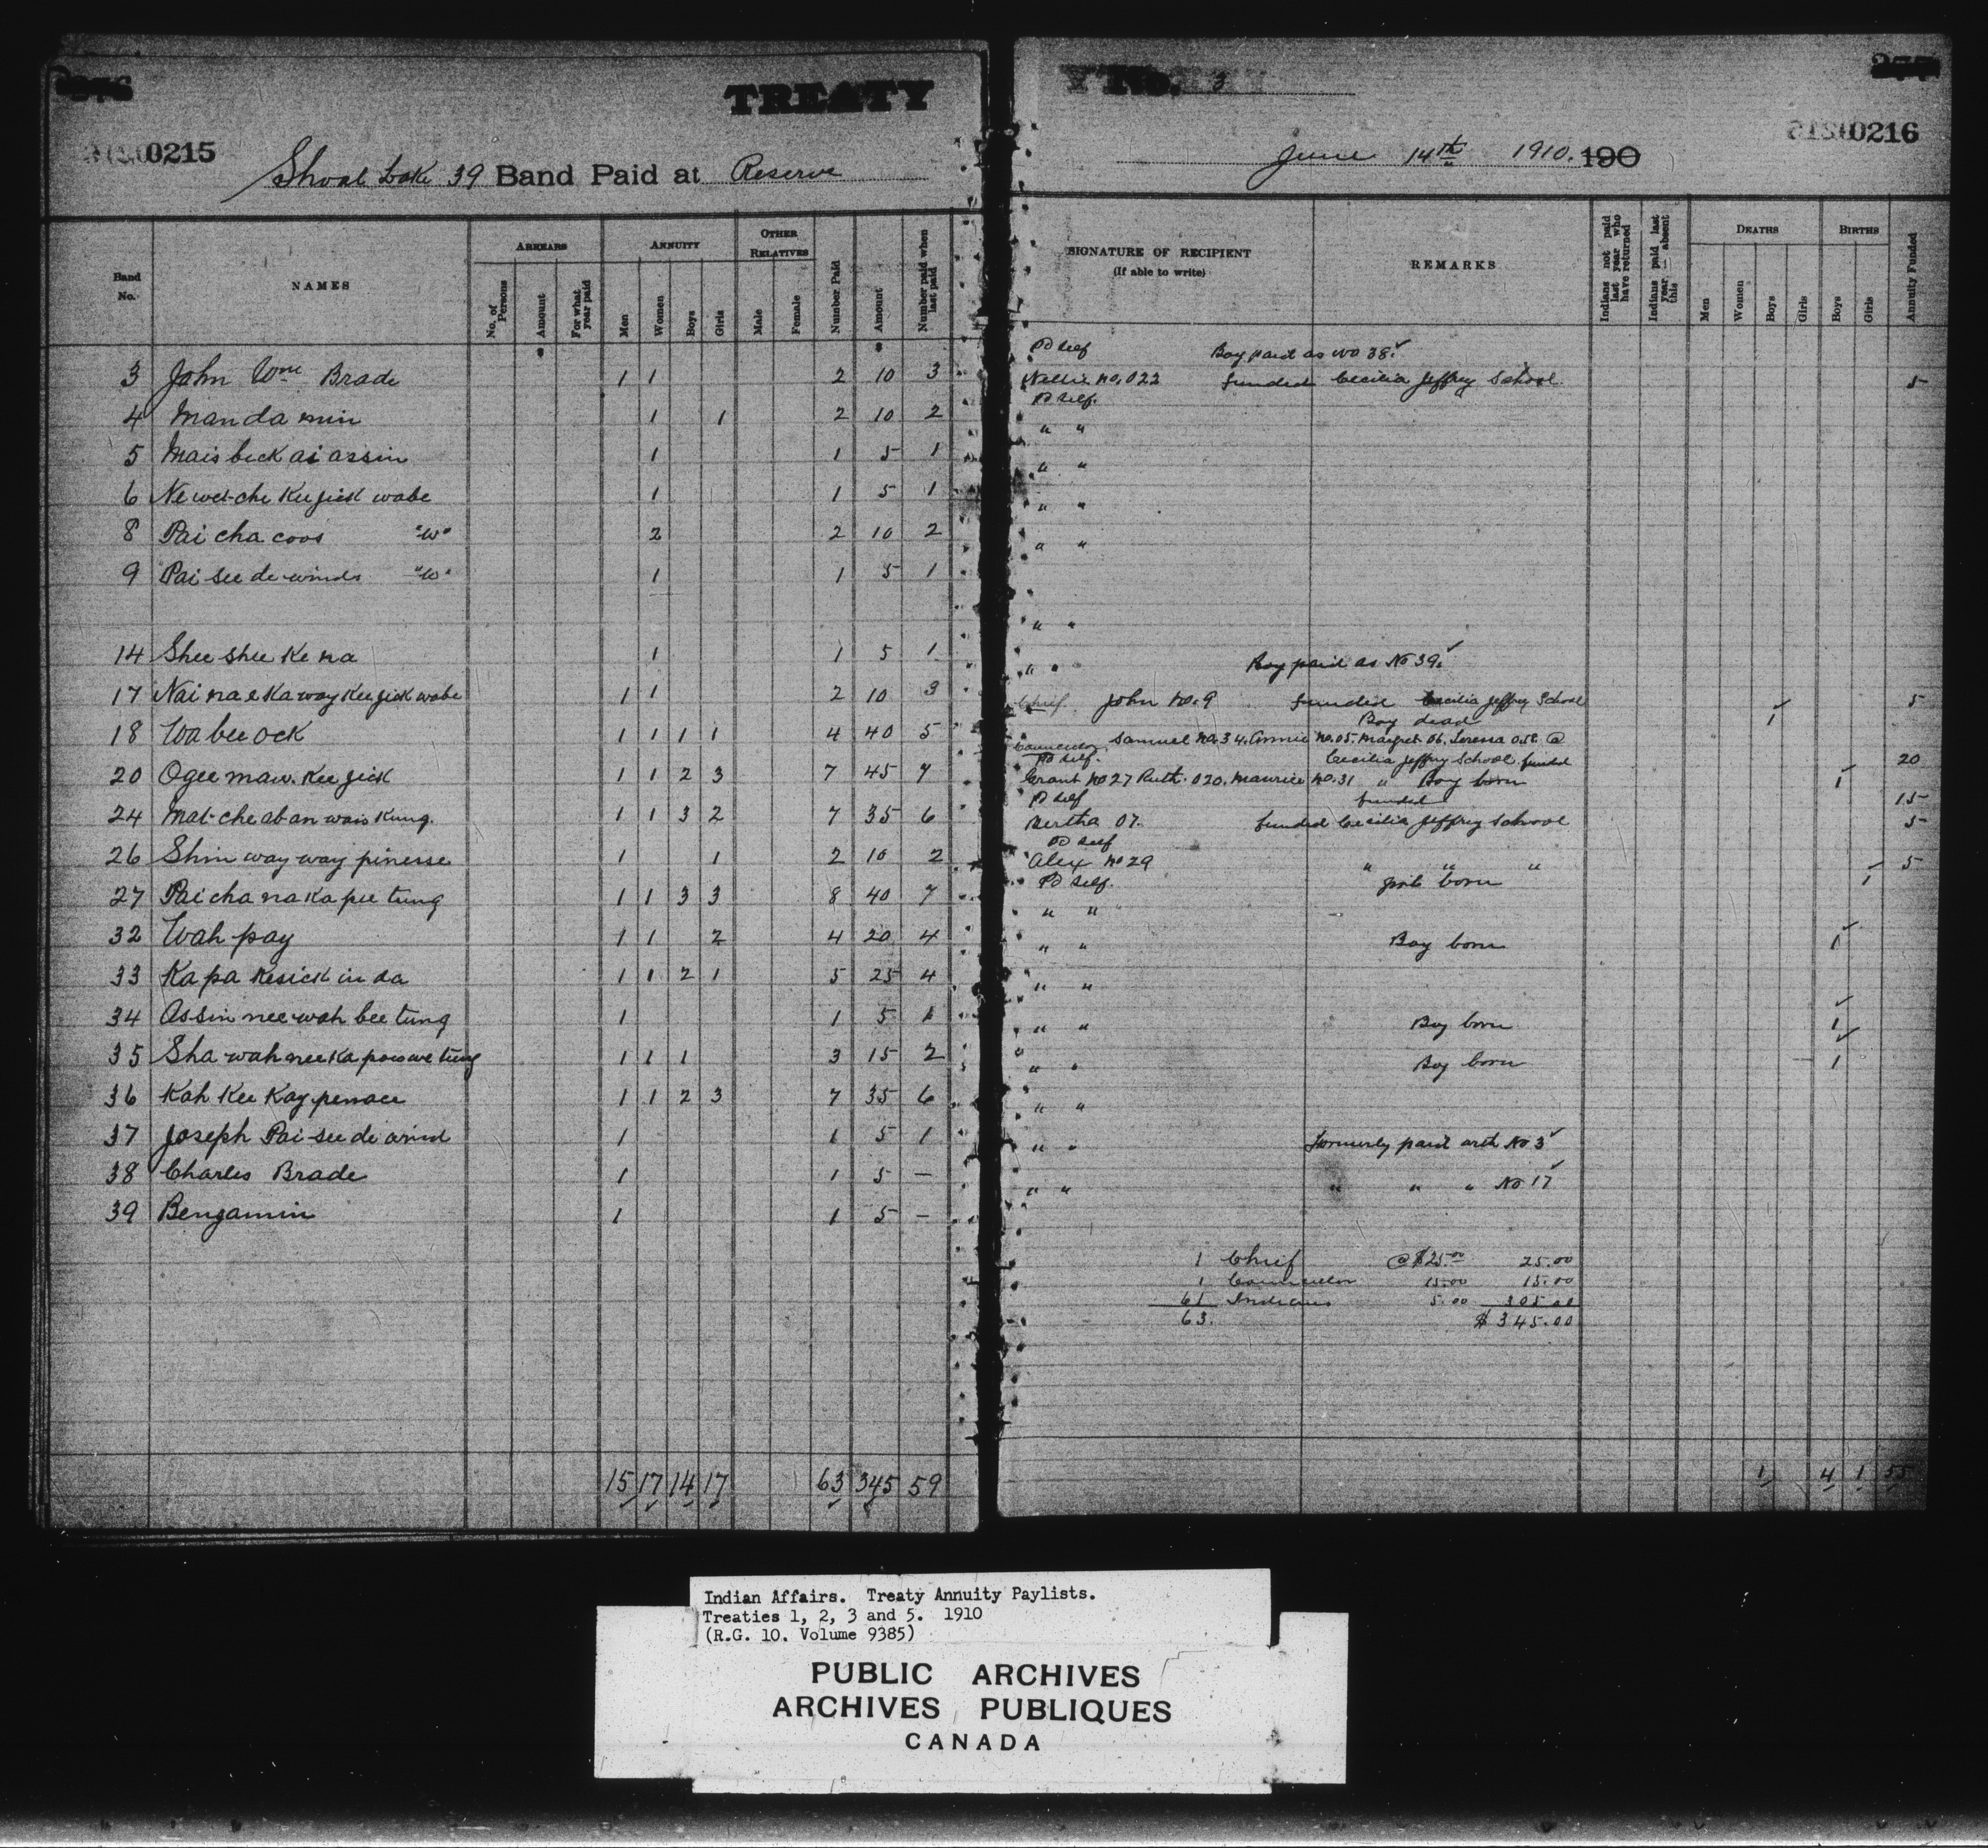 TREATY
0215
Shoal Lake 39 Band Paid at Reserve
Band No. NAMES ARREARS No. of Persons Amount For what year paid ANNUITY Men Women Boys Girls OTHER RELATIVES Male Female Number Paid Amount Number paid when last paid
$ $
3 John Wm Brade 1 1 2 10 3
4 Manda min 1 1 2 10 2
5 Mais beck ai assin 1 1 5 1
6 Ne wet-che Kee jick wabe 1 1 5 1
8 Pai cha coos "W" 2 2 10 2
9 Pai see de winds "W" 1 1 5 1
14 Shee shee Ke na 1 1 5 1
17 Nai na e Ka way Kee jick wabe 1 1 2 10 3
18 Wa bee ock 1 1 1 1 4 40 5
20 Ogee maw. Kee jick 1 1 2 3 7 45 7
24 Mat-che ab an wais Kung. 1 1 3 2 7 35 6
26 Shin way way pinesse 1 1 2 10 2
27 Pai cha na Ka pee tung 1 1 3 3 8 40 7
32 Wah pay 1 1 2 4 20 4
33 Ka pa Kesick in da 1 1 2 1 5 25 4
34 Assin nee wah bee tung 1 1 5 1
35 Sha wah nee Ka pow we tung 1 1 1 3 15 2
36 Kah Kee Kay penace 1 1 2 3 7 35 6
37 Joseph Pai-see de wind 1 1 5 1
38 Charles Brade 1 1 5 —
39 Bengamin 1 1 5 —
15 17 14 17 63 345 59
No. 3
0216
June 14th 1910. 190
SIGNATURE OF RECIPIENT (If able to write) REMARKS Indians not paid last year who have returned Indians paid last year absent this DEATHS Men Women Boys Girls BIRTHS Boys Girls Annuity Funded
Pd self Boy paid as No 38.
Nellie No. 022 funded Cecilia Jeffrey School 5
Pd self.
" "
" "
" "
" "
" "
" " Boy paid as No 39.
Chief John No. 9 funded Cecilia Jeffrey School 5
Boy dead 1
Councillor Samuel No. 34. Annie No. 05. Margret 06. Teressa 058 @
Pd self. Cecilia Jeffrey School funded 20
Grant No 27 Ruth. 020. Maurice No. 31 " Boy born 1
Pd self funded 15
Bertha 07. funded Cecilia Jeffrey School 5
Pd self
Alex No 29 " " " 5
Pd self. girl born 1
" "
" " Boy born 1
" "
" " Boy born 1
" " Boy born 1
" "
" " formerly paid with No 3
" " " " " No 17
1 Chief @ $25.00 25.00
1 Councillor 15.00 15.00
61 Indians 5.00 305.00
63. $345.00
1 4 1 55
Indian Affairs. Treaty Annuity Paylists.
Treaties 1, 2, 3 and 5. 1910
(R.G. 10. Volume 9385)
PUBLIC ARCHIVES
ARCHIVES PUBLIQUES
CANADA